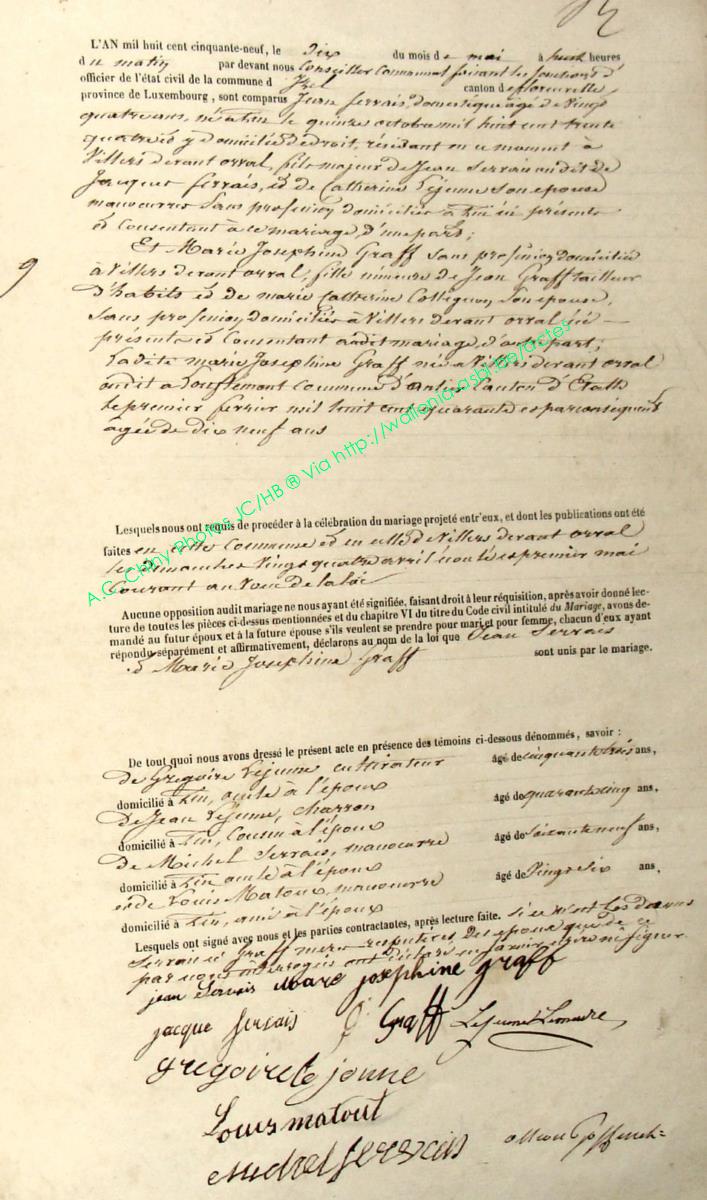 L'AN mil huit cent cinquante-neuf, le dix du mois de mai à huit heures
du matin par devant nous Conseiller Communal faisant les fonctions d'
officier de l'état civil de la commune d' Izel canton de florenville,
province de Luxembourg, sont comparus Jean Servais, domestique âgé de Vingt
quatre ans, né à le quinze octobre mil huit cent trente
quatre et y domicilié de droit, résidant en ce moment à
Villers devant orval, fils majeur de Jean Servais ou dit de
Jacques Servais, et de Catherine Lejeune son épouse
manouvriers sans profession domiciliés à ici présents
et Consentant à ce mariage d'une part;
Et Marie Josephine Graff sans profession domiciliée
9
à Villers devant orval, fille mineure de Jean Graff tailleur
d'habits et de marie Catherine Collignon, son épouse,
sans profession, domiciliés à Villers devant orval ici
présents et Consentant audit mariage, d'autre part;
Ladite marie Josephine Graff née à Villers devant orval
Commune d'anlier Canton d'Étalle
le premier février mil huit cent quarante et par conséquent
âgée de dix neuf ans
Lesquels nous ont requis de procéder à la célébration du mariage projeté entr'eux, et dont les publications ont été
faites en cette Commune et en celle de Villers devant orval
les dimanches Vingt quatre avril et premier mai
Courant au vœu de la loi
Aucune opposition audit mariage ne nous ayant été signifiée, faisant droit à leur réquisition, après avoir donné lec-
ture de toutes les pièces ci-dessus mentionnées et du chapitre VI du titre du Code civil intitulé du Mariage, avons de-
mandé au futur époux et à la future épouse s'ils veulent se prendre pour mari et pour femme, chacun d'eux ayant
répondu séparément et affirmativement, déclarons au nom de la loi que Jean Servais
et Marie Josephine Graff sont unis par le mariage.
De tout quoi nous avons dressé le présent acte en présence des témoins ci-dessous dénommés, savoir :
De Grégoire Lejeune cultivateur âgé de cinquante trois ans,
domicilié à oncle à l'époux
De Jean Lejeune, charron âgé de quarante cinq ans,
domicilié à Cousin à l'époux
De Michel Servais, manouvre âgé de soixante neuf ans,
domicilié à oncle à l'époux
et de Louis Matoux, manouvre âgé de Vingt six ans,
domicilié à ami à l'époux
Lesquels ont signé avec nous et les parties contractantes, après lecture faite. Si ce n'est les dames
Servais et Graff mères respectives des époux que de ce
par nous interrogées ont déclaré ne savoir écrire ni signer.
jean Servais Marie josephine graff
jacque servais J Graff Lejeune
gregoire le jeunne
Louis matout
michel servais
A.G. Chiny Photos JC/HB ® Via http://wallonia-asbl.be/actes